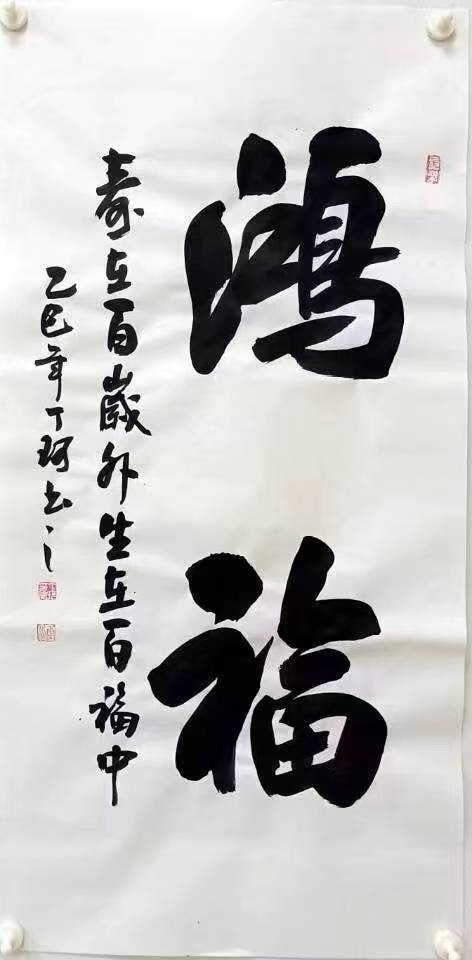 鸿福
寿在百歲外生在百福中
乙巳年丁珂书之